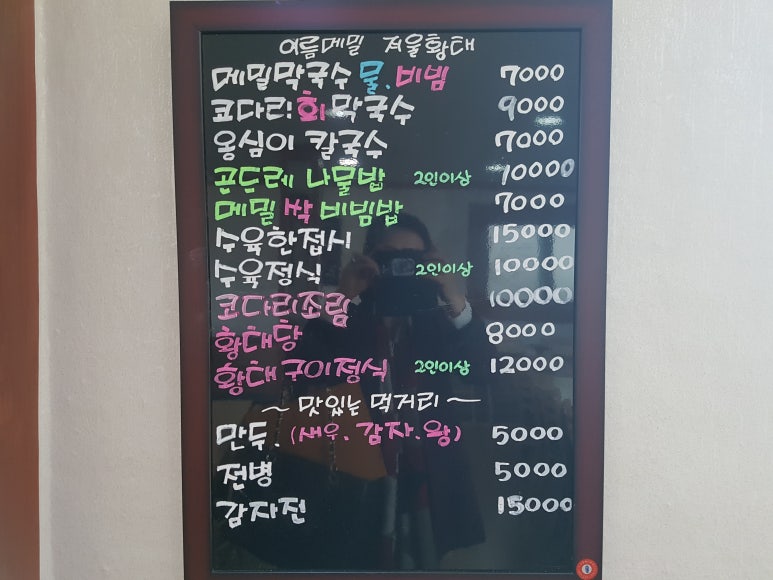 여름메밀 겨울황태
메밀막국수 물.비빔 7000
코다리회막국수 9000
옹심이 칼국수 7000
곤드레 나물밥 2인이상 10000
메밀싹비빔밥 7000
수육한접시 15000
수육정식 2인이상 10000
코다리조림 10000
황태탕 8000
황태구이정식 2인이상 12000
~ 맛있는 먹거리 ~
만두. (새우.감자.왕) 5000
전병 5000
감자전 15000